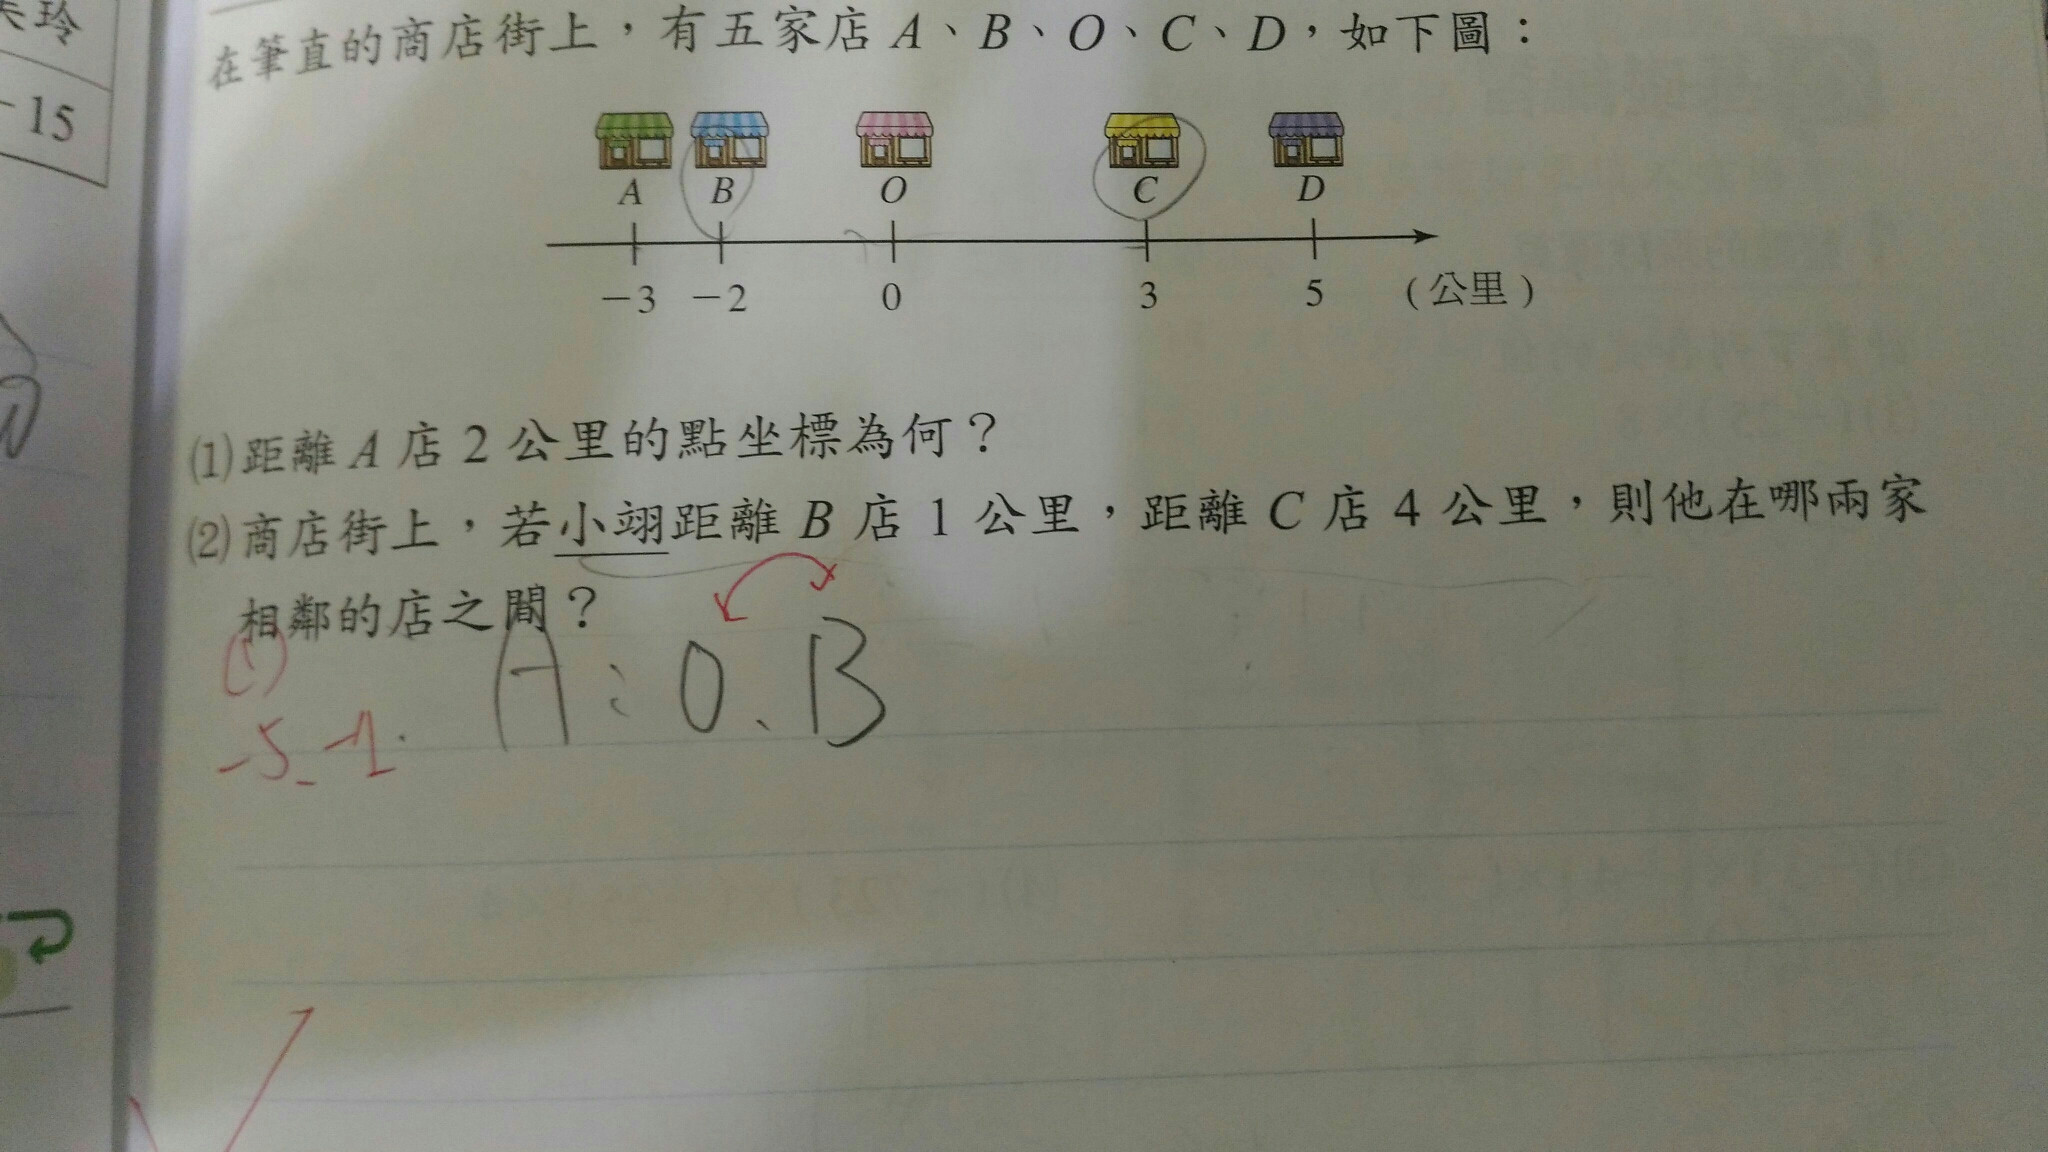 玲
-15
在筆直的商店街上，有五家店 A、B、O、C、D，如下圖：
A B O C D
-3 -2 0 3 5 (公里)
⑴距離 A 店 2 公里的點坐標為何？
⑵商店街上，若小翊距離 B 店 1 公里，距離 C 店 4 公里，則他在哪兩家
相鄰的店之間？
(1)
A：O、B
-5、-1.